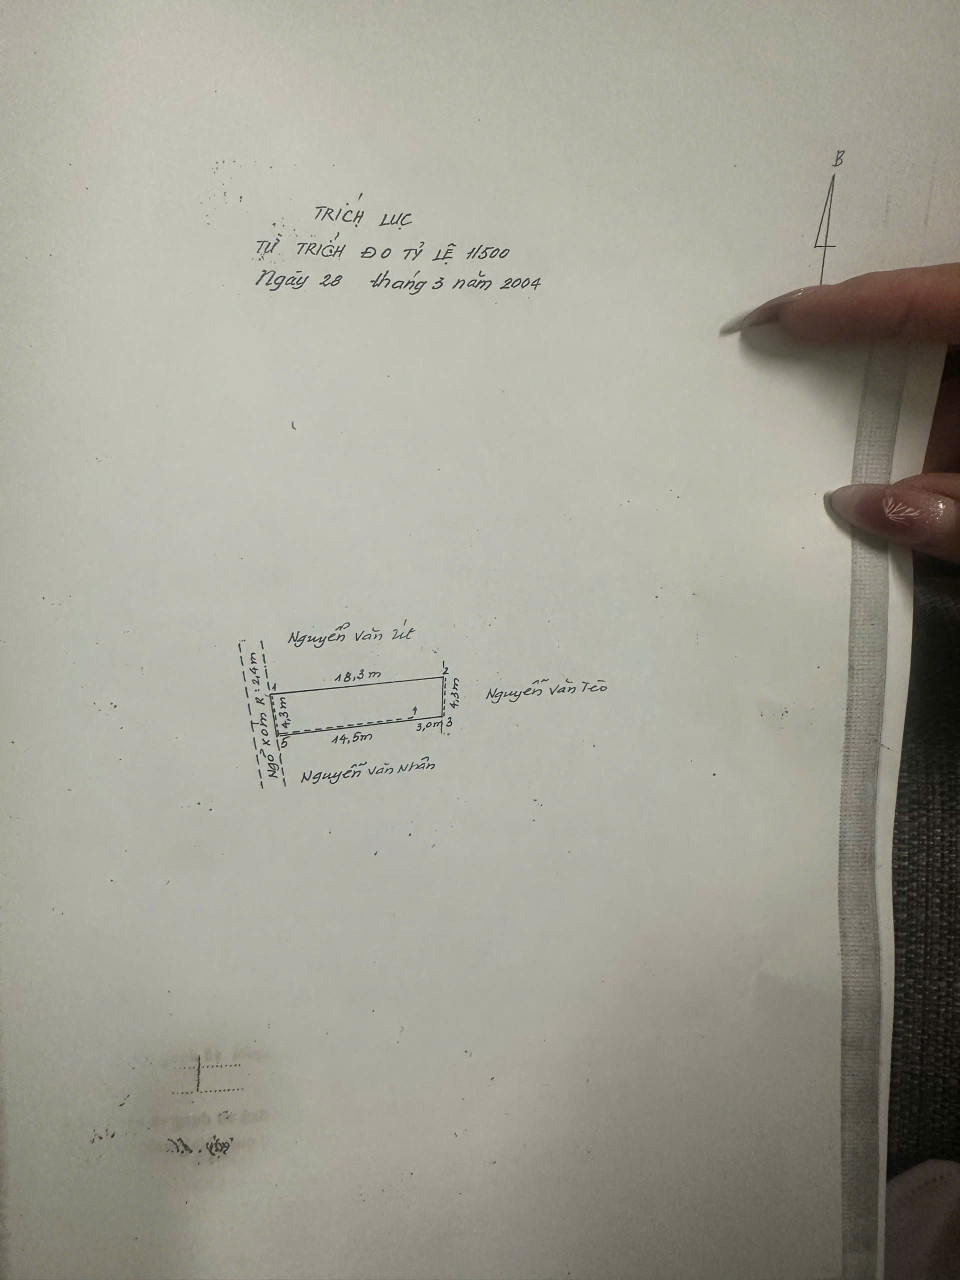 B
TRÍCH LỤC
TỪ TRÍCH ĐO TỶ LỆ 1/500
Ngày 28 tháng 3 năm 2004
Nguyễn Văn Út
18,3m
2
Ngõ xóm R: 2,4m
1
4,3m
4,3m
Nguyễn Văn Tèo
5
14,5m
4
3,0m
3
Nguyễn Văn Nhân